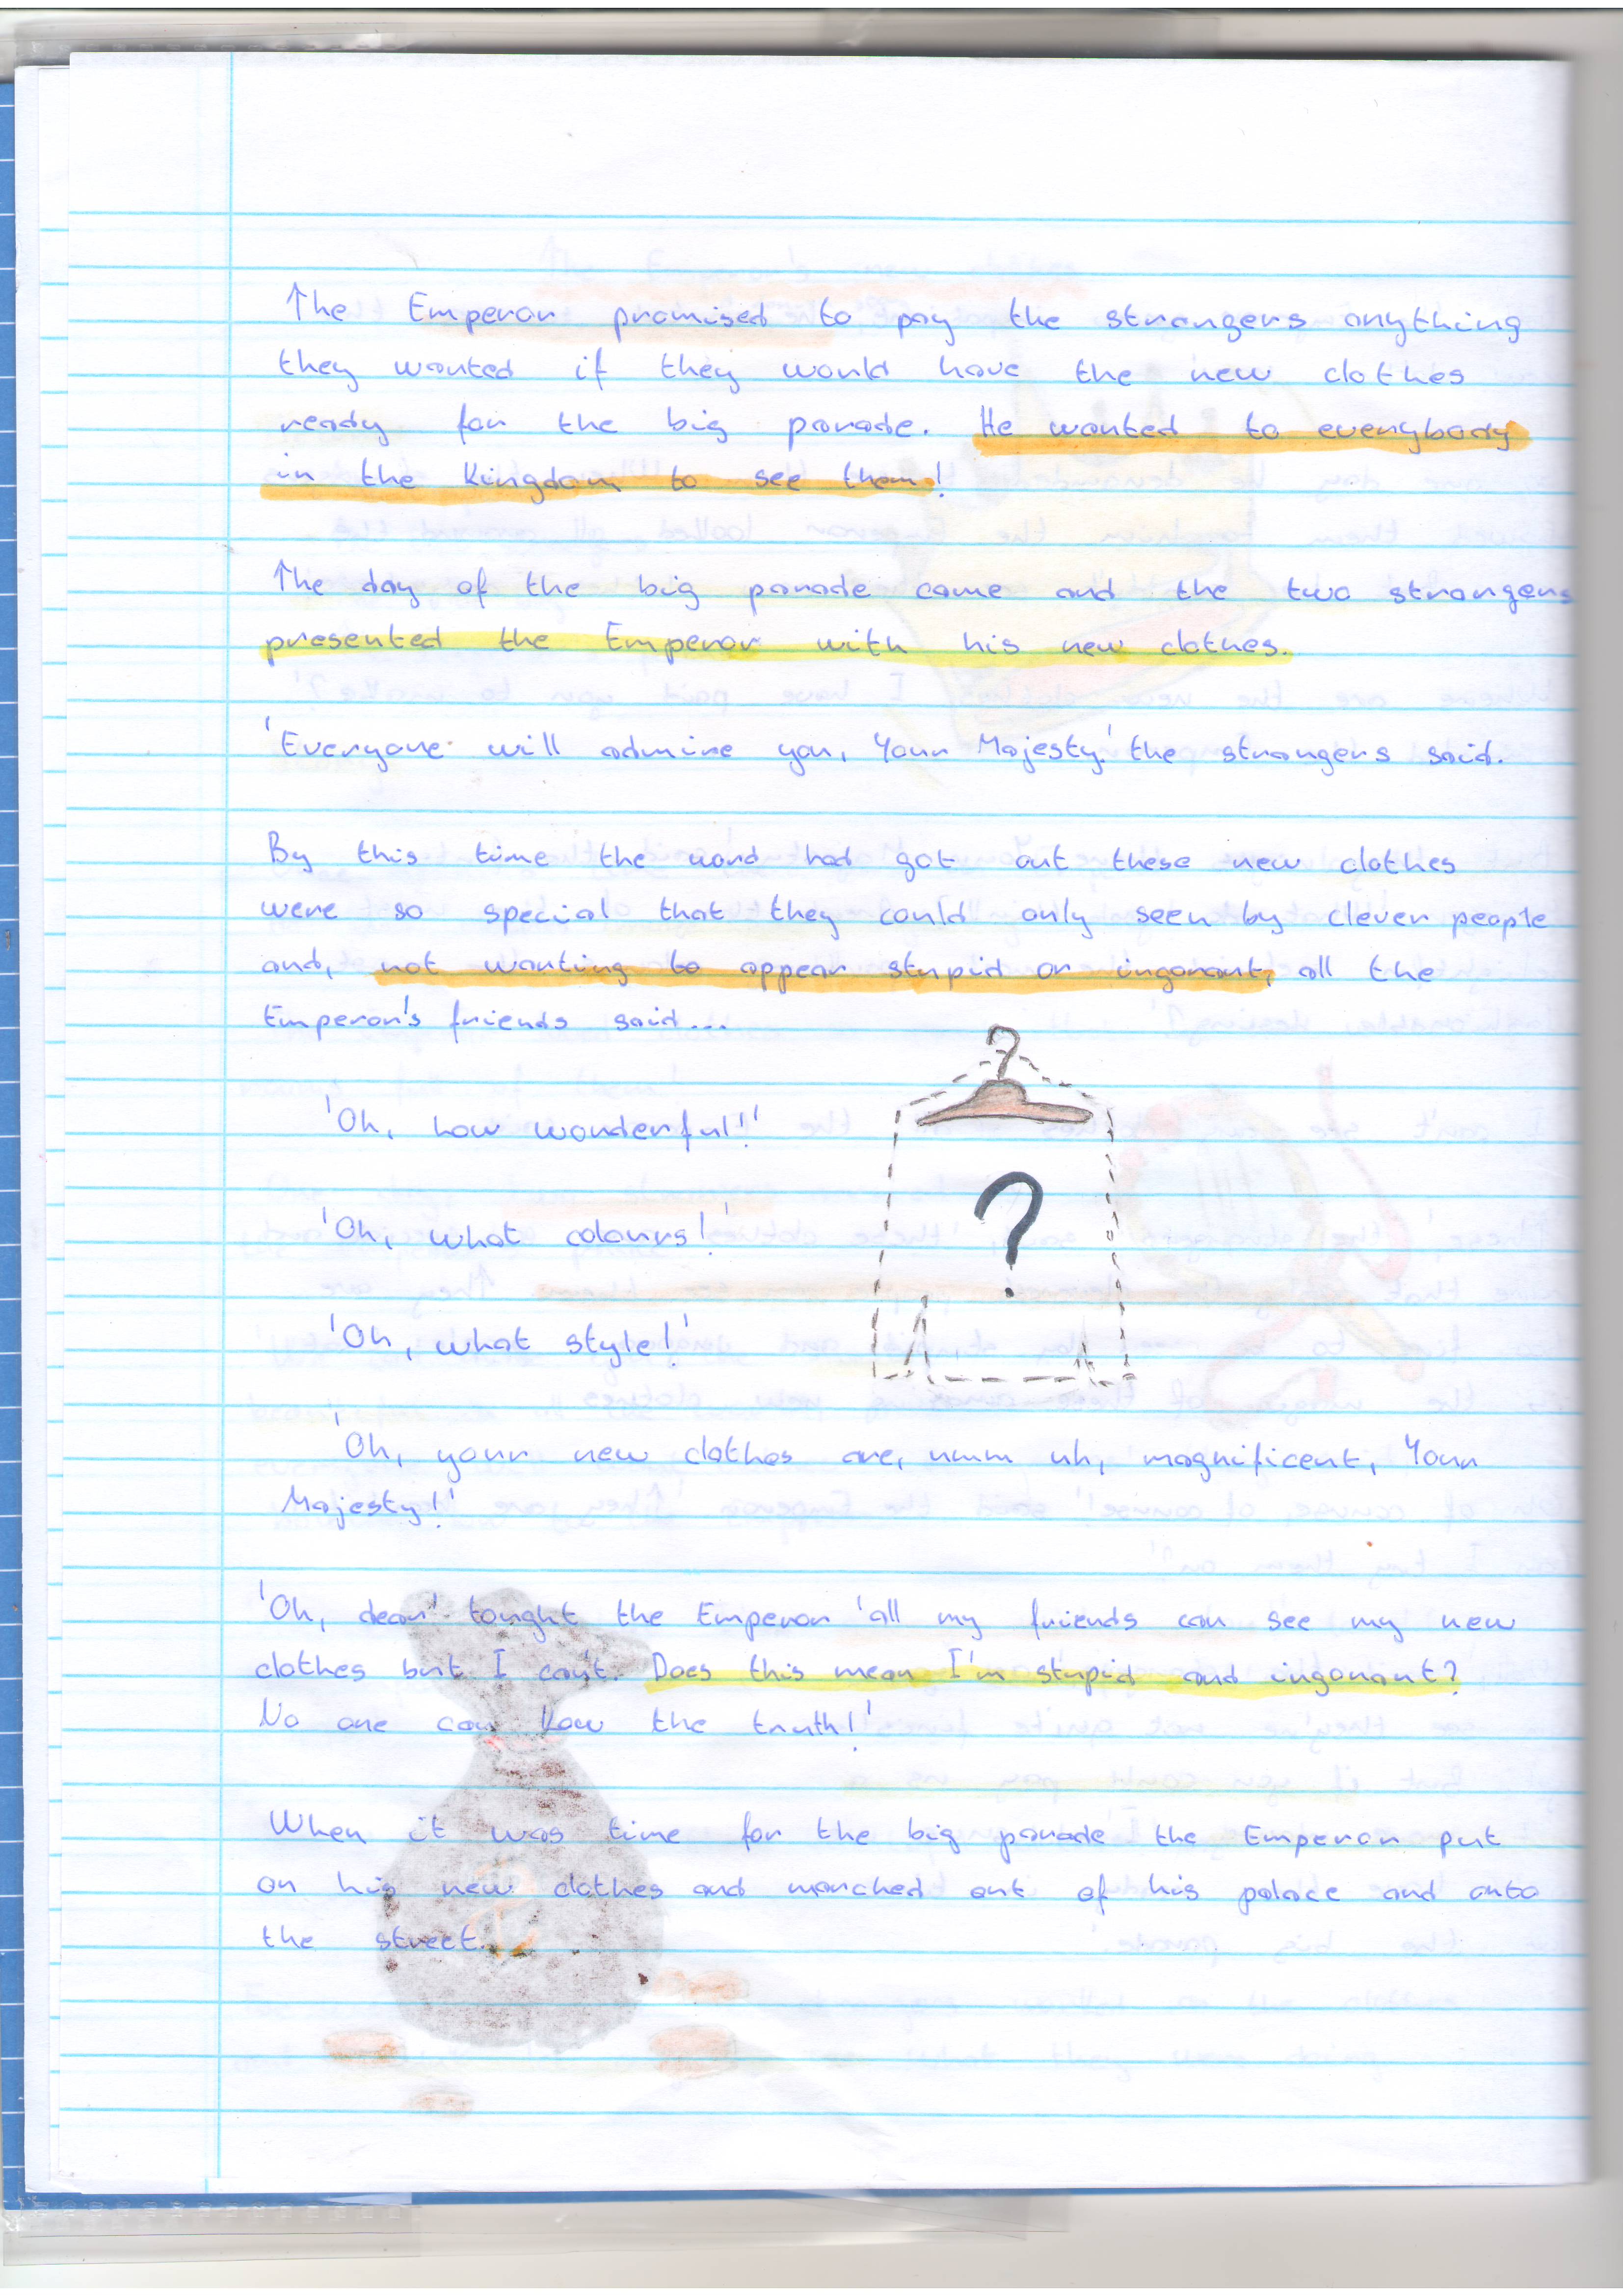 The Emperor promised to pay the strangers anything
they wanted if they would have the new clothes
ready for the big parade. He wanted to everybody
in the Kingdom to see them!
The day of the big parade came and the two strangers
presented the Emperor with his new clothes.
'Everyone will admire you, Your Majesty.' the strangers said.
By this time the word had got out these new clothes
were so special that they could only seen by clever people
and, not wanting to appear stupid or ingorant, all the
Emperor's friends said...
'Oh, how wonderful!'
'Oh, what colours!'
'Oh, what style!'
?
'Oh, your new clothes are, umm uh, magnificent, Your
Majesty!'
'Oh, dear' tought the Emperor 'all my friends can see my new
clothes but I can't. Does this mean I'm stupid and ingorant?
No one can kow the truth!'
When it was time for the big parade the Emperor put
on his new clothes and marched out of his palace and onto
the street.